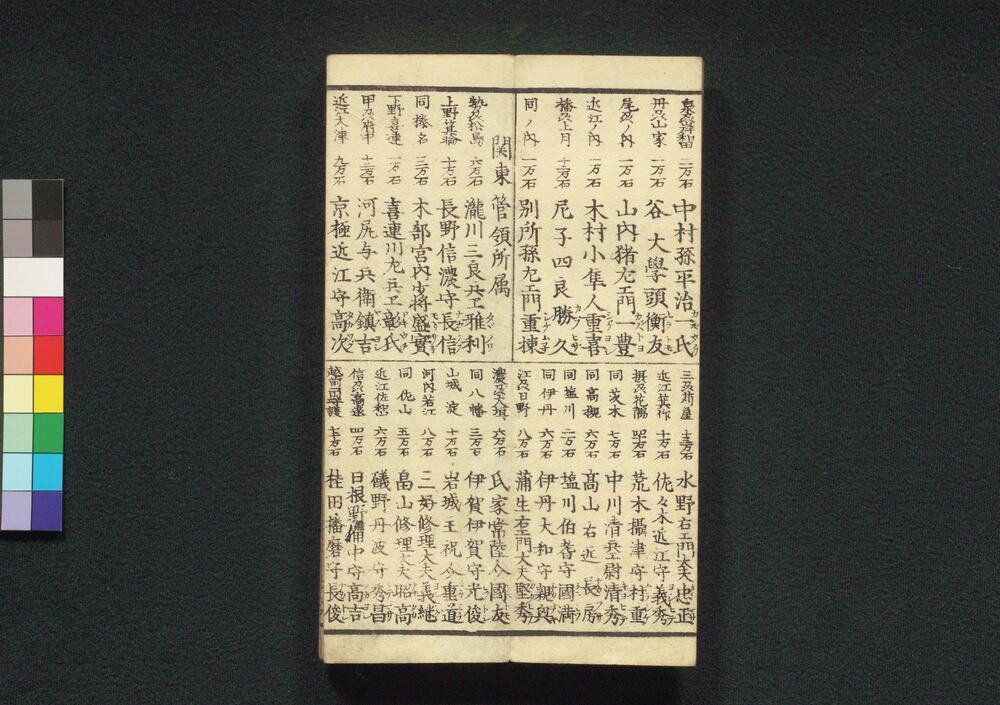 泉州岸和田 二万石 中村孫平治一氏
丹州山家 一万石 谷大學頭衡友
尾州ノ内 一万石 山内猪右エ門一豊
近江ノ内 一万石 木村小隼人重喜
播州上月 十二万石 尼子四良勝久
同ノ内 一万石 別所孫右エ門重棟
関東管領所属
勢州松島 六万石 瀧川三良兵エ雅利
上野箕輪 十万石 長野信濃守長信
同榛名 三万石 木部宮内少将盛實
下野喜連 一万石 喜連川左兵エ彰氏
甲州府中 十二万石 河尻与兵衛鎮吉
近江大津 九万石 京極近江守高次
三州苅屋 十三万石 水野右エ門大夫忠正
近江箕作 十万石 佐々木近江守義秀
摂州花隈 四万石 荒木攝津守村重
同茨木 七万石 中川清兵エ尉清秀
同高槻 六万石 髙山右近長房
同塩川 二万石 塩川伯耆守國満
同伊丹 六万石 伊丹大和守親興
江州日野 八万石 蒲生右エ門大夫堅秀
濃州大垣 六万石 氏家常陸介國友
同八幡 三万石 伊賀伊賀守光俊
山城淀 十万石 岩城王祝介重道
河内若江 八万石 三好修理大夫義継
同佐山 五万石 畠山修理大夫昭高
近江佐和山 六万石 礒野丹波守秀昌
信州高遠 四万石 日根野備中守高吉
越前国守護 七十万石 桂田播磨守長俊